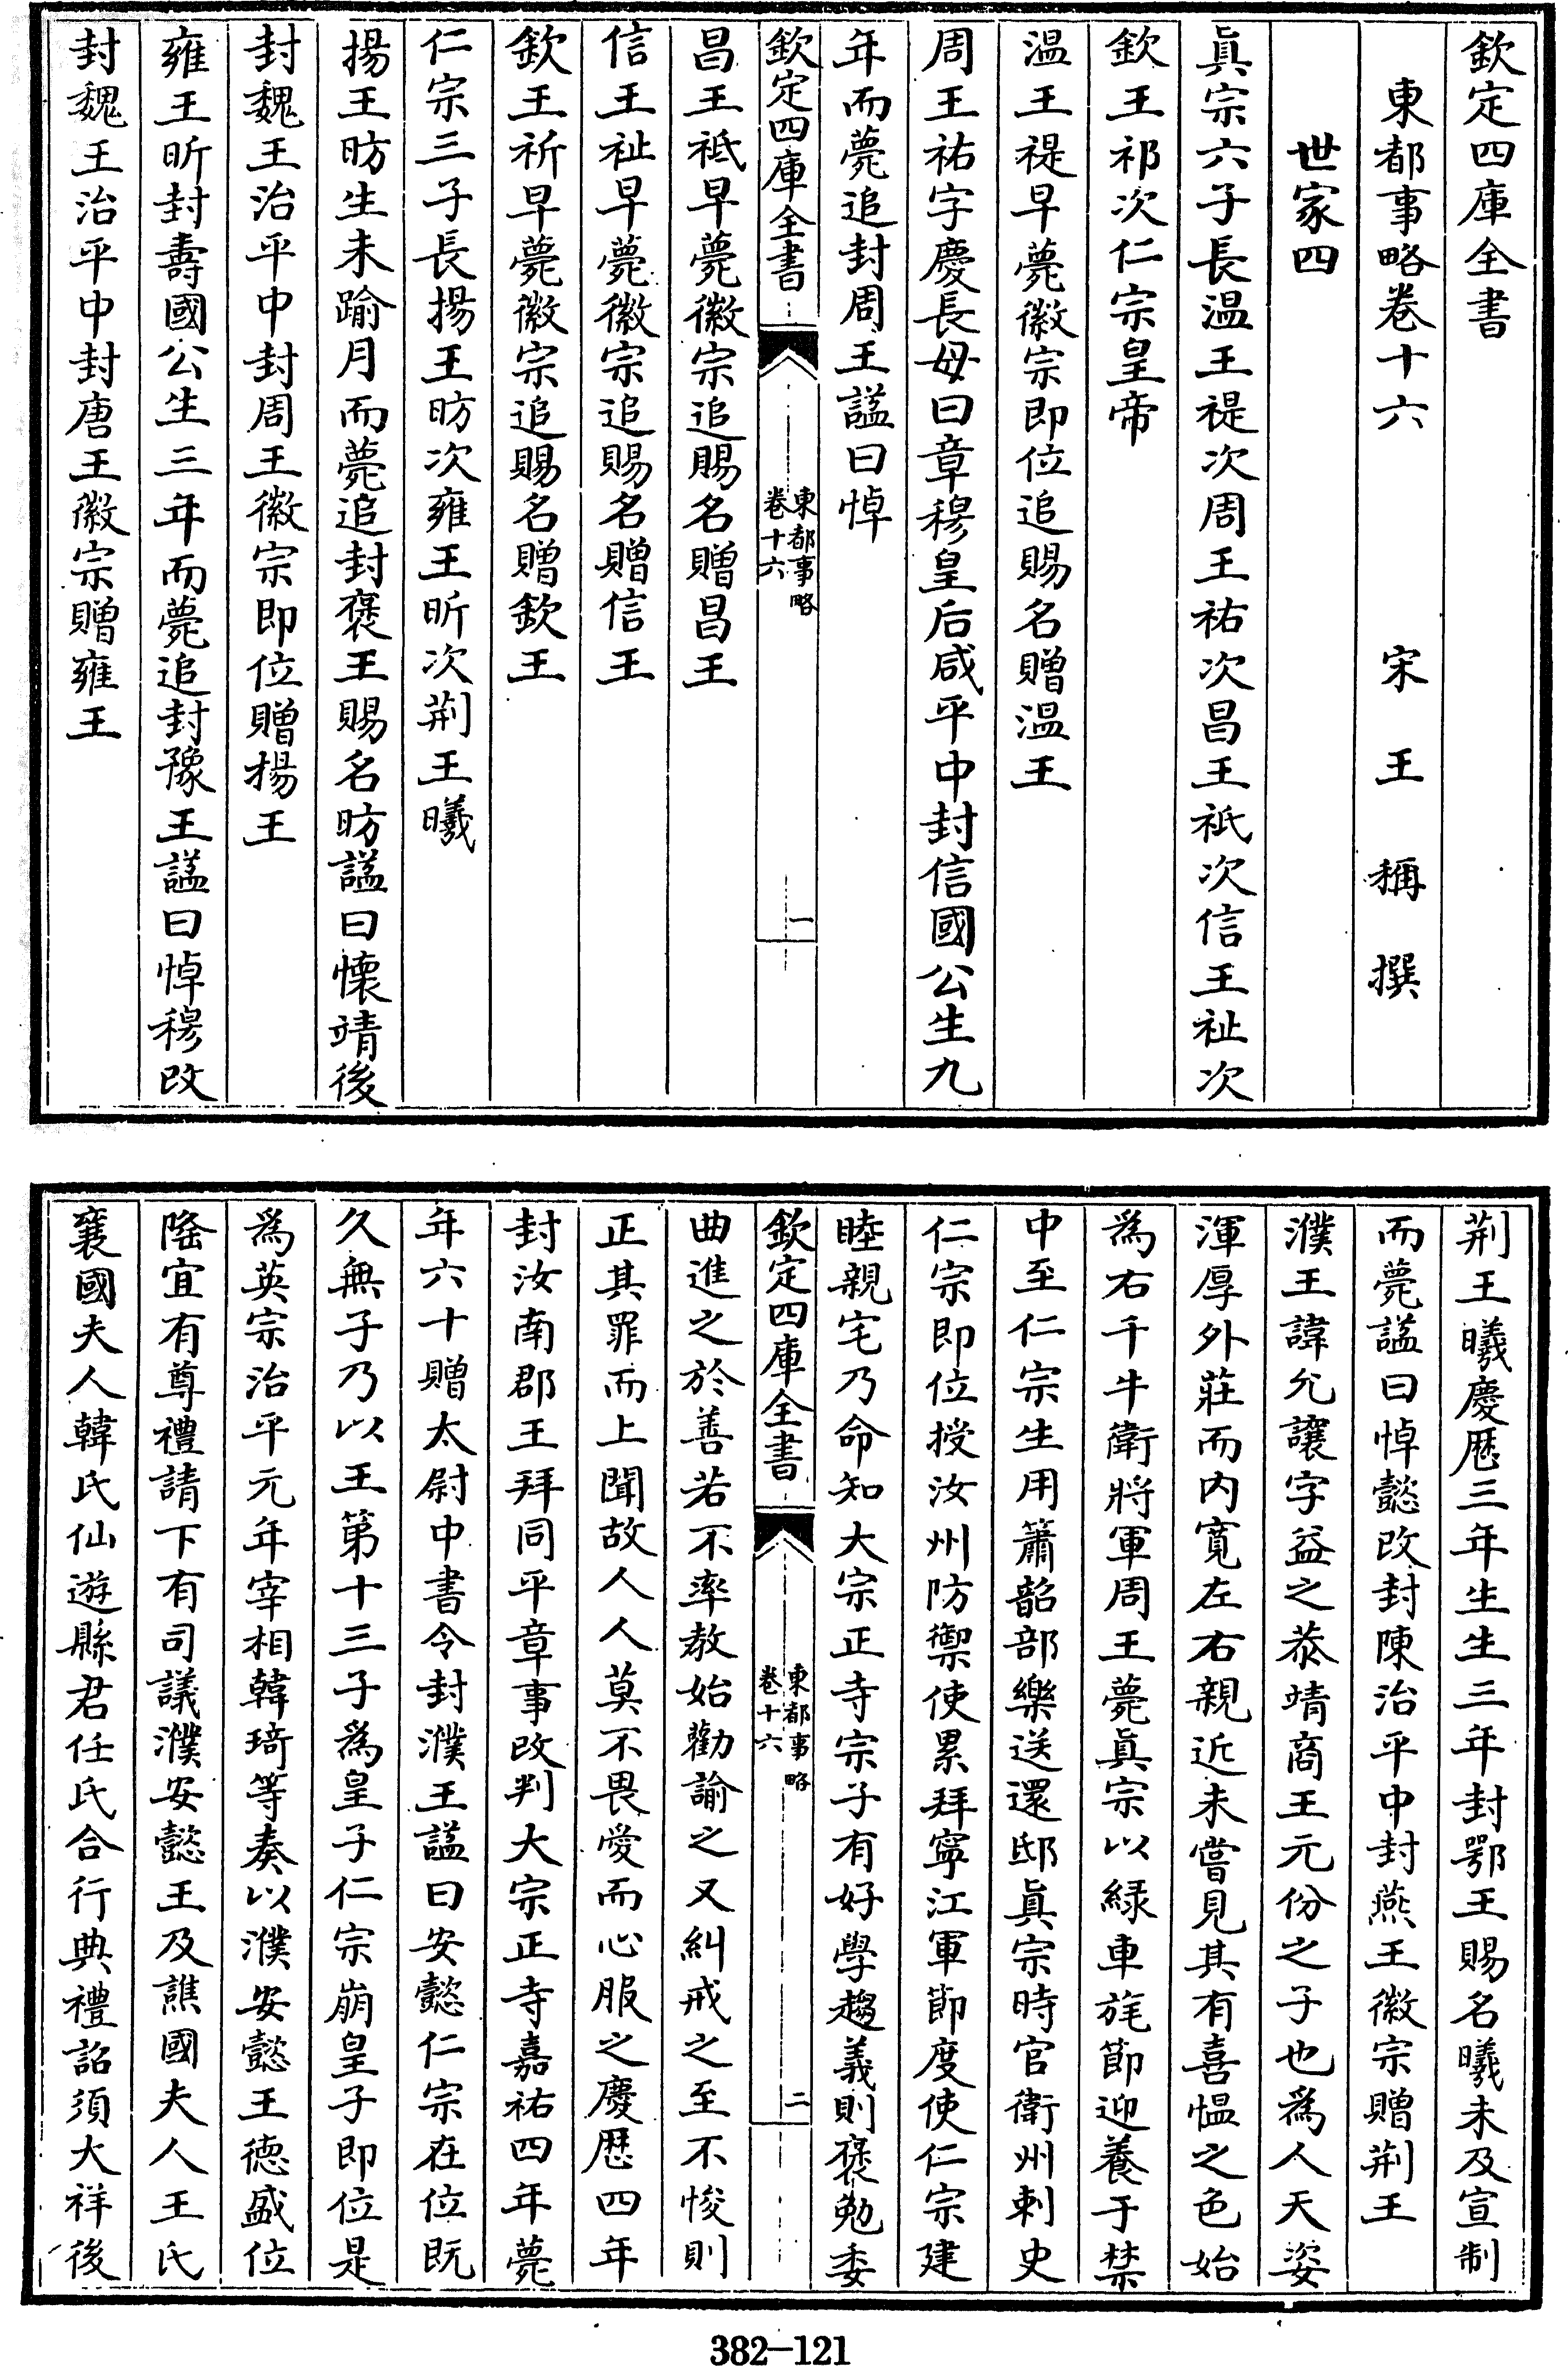 欽定四庫全書
東都事略卷十六　宋　王　稱　撰
世家四
眞宗六子長温王禔次周王祐次昌王祇次信王祉次
欽王祁次仁宗皇帝
溫王禔早薨徽宗即位追賜名贈温王
周王祐字慶長母曰章穆皇后咸平中封信國公生九
年而薨追封周王諡曰悼
欽定四庫全書
東都事略
卷十六
一
昌王祗早薨徽宗追賜名贈昌王
信王祉早薨徽宗追賜名贈信王
欽王祈早薨徽宗追賜名贈欽王
仁宗三子長揚王昉次雍王昕次荆王曦
揚王昉生未踰月而薨追封褒王賜名昉諡曰懷靖後
封魏王治平中封周王徽宗即位贈揚王
雍王昕封壽國公生三年而薨追封豫王諡曰悼穆改
封魏王治平中封唐王徽宗贈雍王
荆王曦慶厯三年生生三年封鄂王賜名曦未及宣制
而薨諡曰悼懿改封陳治平中封燕王徽宗贈荆王
濮王諱允讓字益之恭靖商王元份之子也為人天姿
渾厚外莊而内寛左右親近未嘗見其有喜愠之色始
為右千牛衛將軍周王薨眞宗以緑車旄節迎養于禁
中至仁宗生用簫韶部樂送還邸眞宗時官衛州刺史
仁宗即位授汝州防禦使累拜寧江軍節度使仁宗建
睦親宅乃命知大宗正寺宗子有好學趨義則褒勉委
欽定四庫全書
東都事略
卷十六
二
曲進之於善若不率教始勸諭之又糾戒之至不悛則
正其罪而上聞故人人莫不畏愛而心服之慶厯四年
封汝南郡王拜同平章事改判大宗正寺嘉祐四年薨
年六十贈太尉中書令封濮王諡曰安懿仁宗在位既
久無子乃以王第十三子為皇子仁宗崩皇子即位是
為英宗治平元年宰相韓琦等奏以濮安懿王德盛位
隆宜有尊禮請下有司議濮安懿王及譙國夫人王氏
襄國夫人韓氏仙遊縣君任氏合行典禮詔須大祥後
382-121